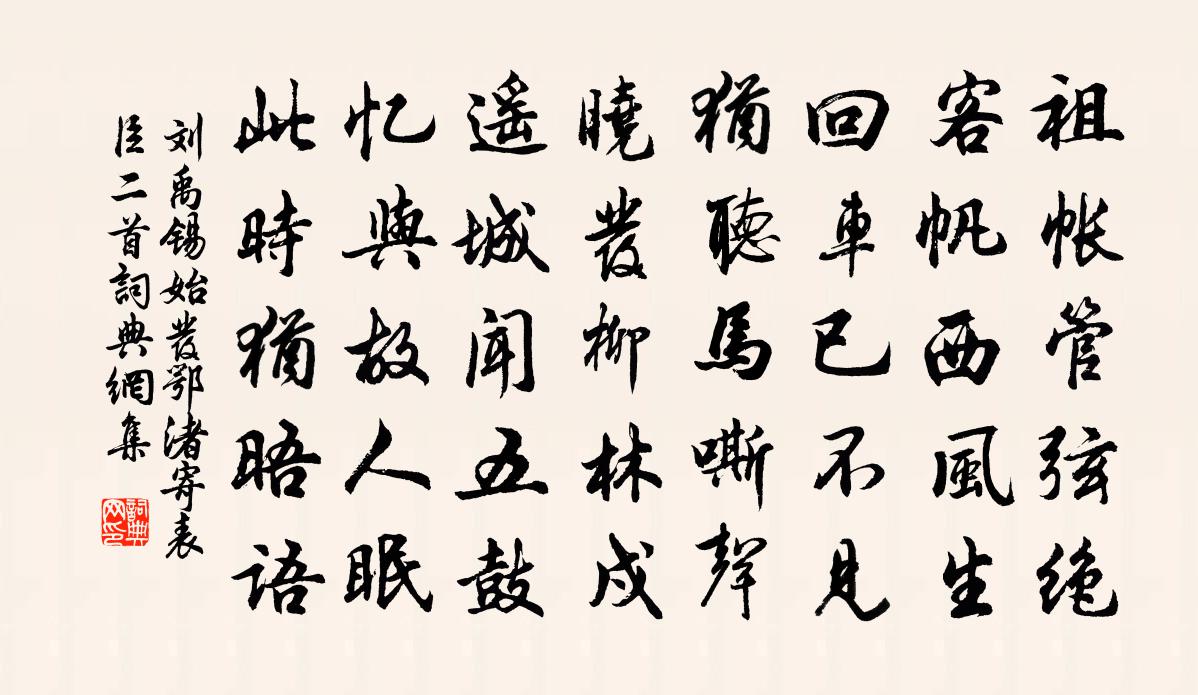 祖帐管弦绝
客帆西風生
回車已不見
猶聽馬嘶聲
曉發柳林戍
遥城闻五鼓
忆與故人眠
此時猶晤语
刘禹锡始發鄂渚寄表
臣二首詞典網集
詞典网印